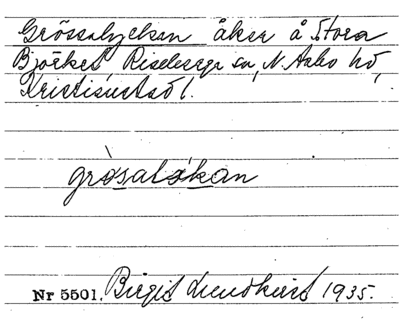 Grössalyckan åker å Stora
Björket Riseberga sn, N. Åsbo hd,
Kristianstads l.
grò̀salỳkan
Nr 5501. Birgit Lundkvist 1935.